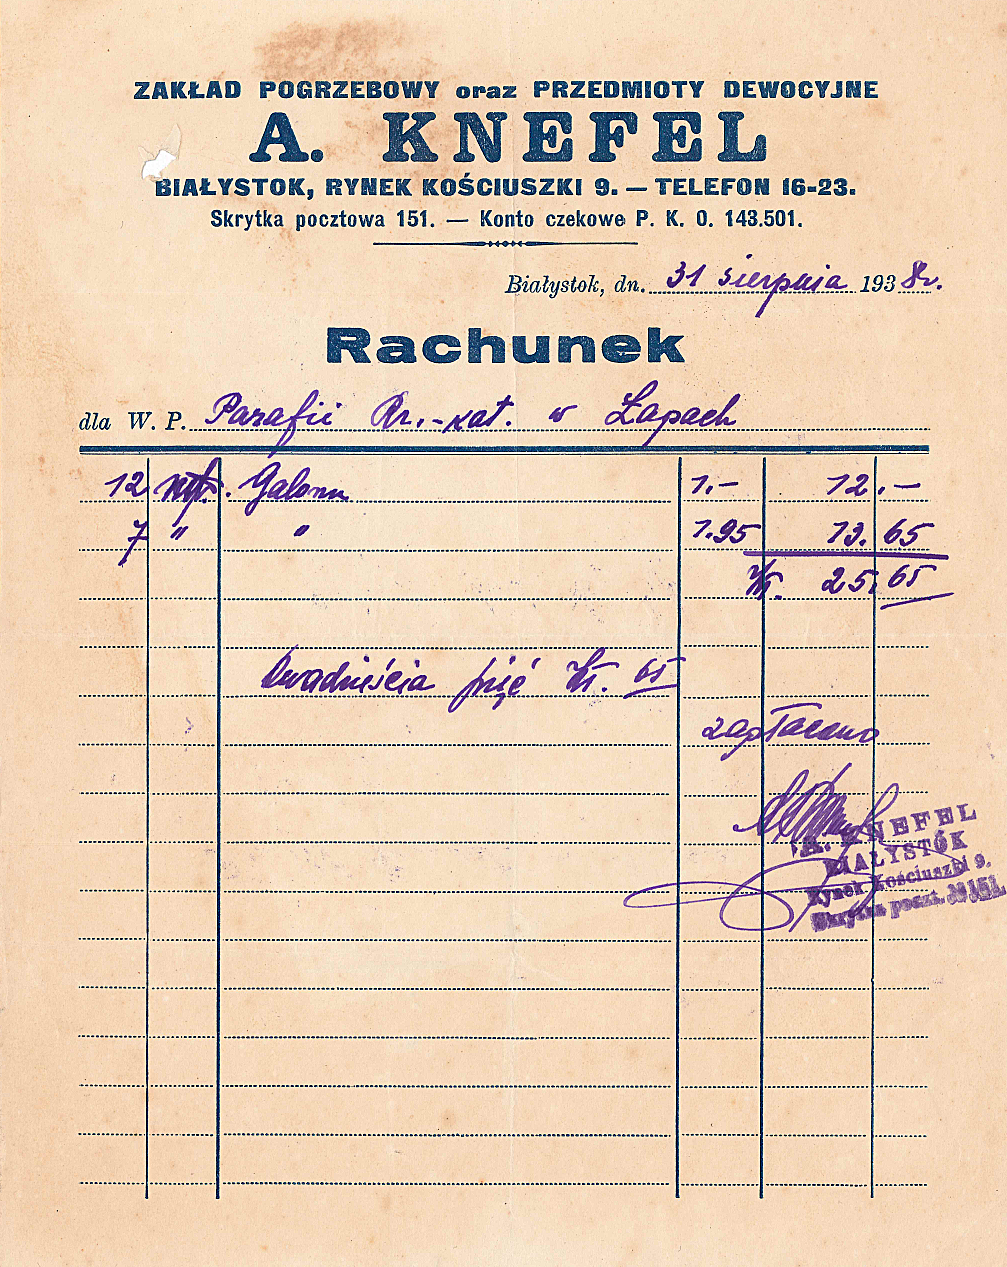 ZAKŁAD POGRZEBOWY oraz PRZEDMIOTY DEWOCYJNE
A. KNEFEL
BIAŁYSTOK, RYNEK KOŚCIUSZKI 9. — TELEFON 16-23.
Skrytka pocztowa 151. — Konto czekowe P. K. O. 143.501.
Białystok, dn. 31 sierpnia 1938r.
Rachunek
dla W. P. Parafii Rz.-kat. w Łapach
12 mtr. Galonu 1.- 12.-
7 " " 1.95 13.65
Zł. 25.65
Dwadzieścia pięć Zł. 65
zapłacono
A. KNEFEL
BIAŁYSTOK
Rynek Kościuszki 9.
Skrytka poczt. № 151.